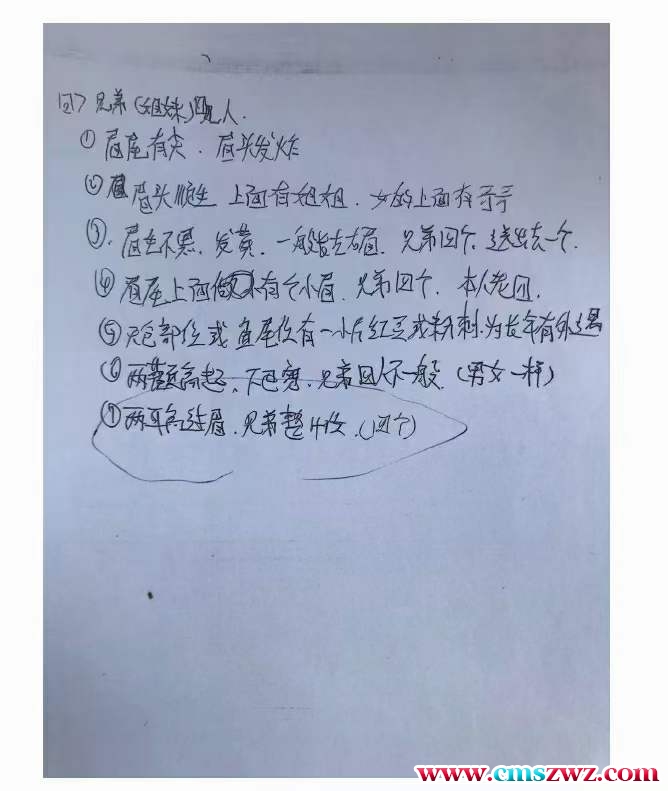 四〉兄弟(姐妹)四人.
①眉尾有尖.眉头发炸
②眉头顺生 上面有姐姐.女的上面有哥哥
③.眉毛不黑.发黄.一般指左右眉.兄弟四个.送出去一个.
④眉尾上面有个小眉.兄弟四个.本人老四.
⑤夫仓部位或鱼尾位有一小片红豆或粉刺.为长年有外遇
⑥两颧高起.下巴宽.兄弟四人不一般.(男女一样)
⑦两耳高过眉.兄弟整.(四个)
www.cmszwz.com